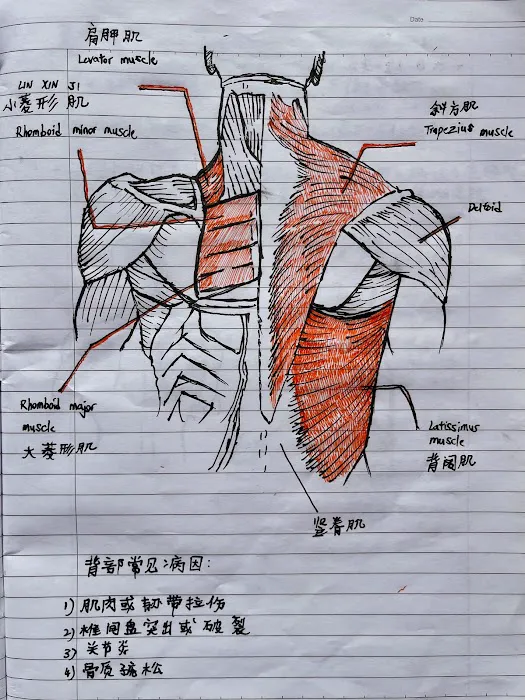 Date
肩胛肌
Levator muscle
LIN XIN JI
小菱形 肌
Rhomboid minor muscle
斜方肌
Trapezius muscle
Deltoid
Rhomboid major
muscle
大菱形肌
Latissimus
muscle
背阔肌
竖脊肌
背部常见病因:
1) 肌肉或韧带拉伤
2) 椎间盘突出或破裂
3) 关节炎
4) 骨质疏松